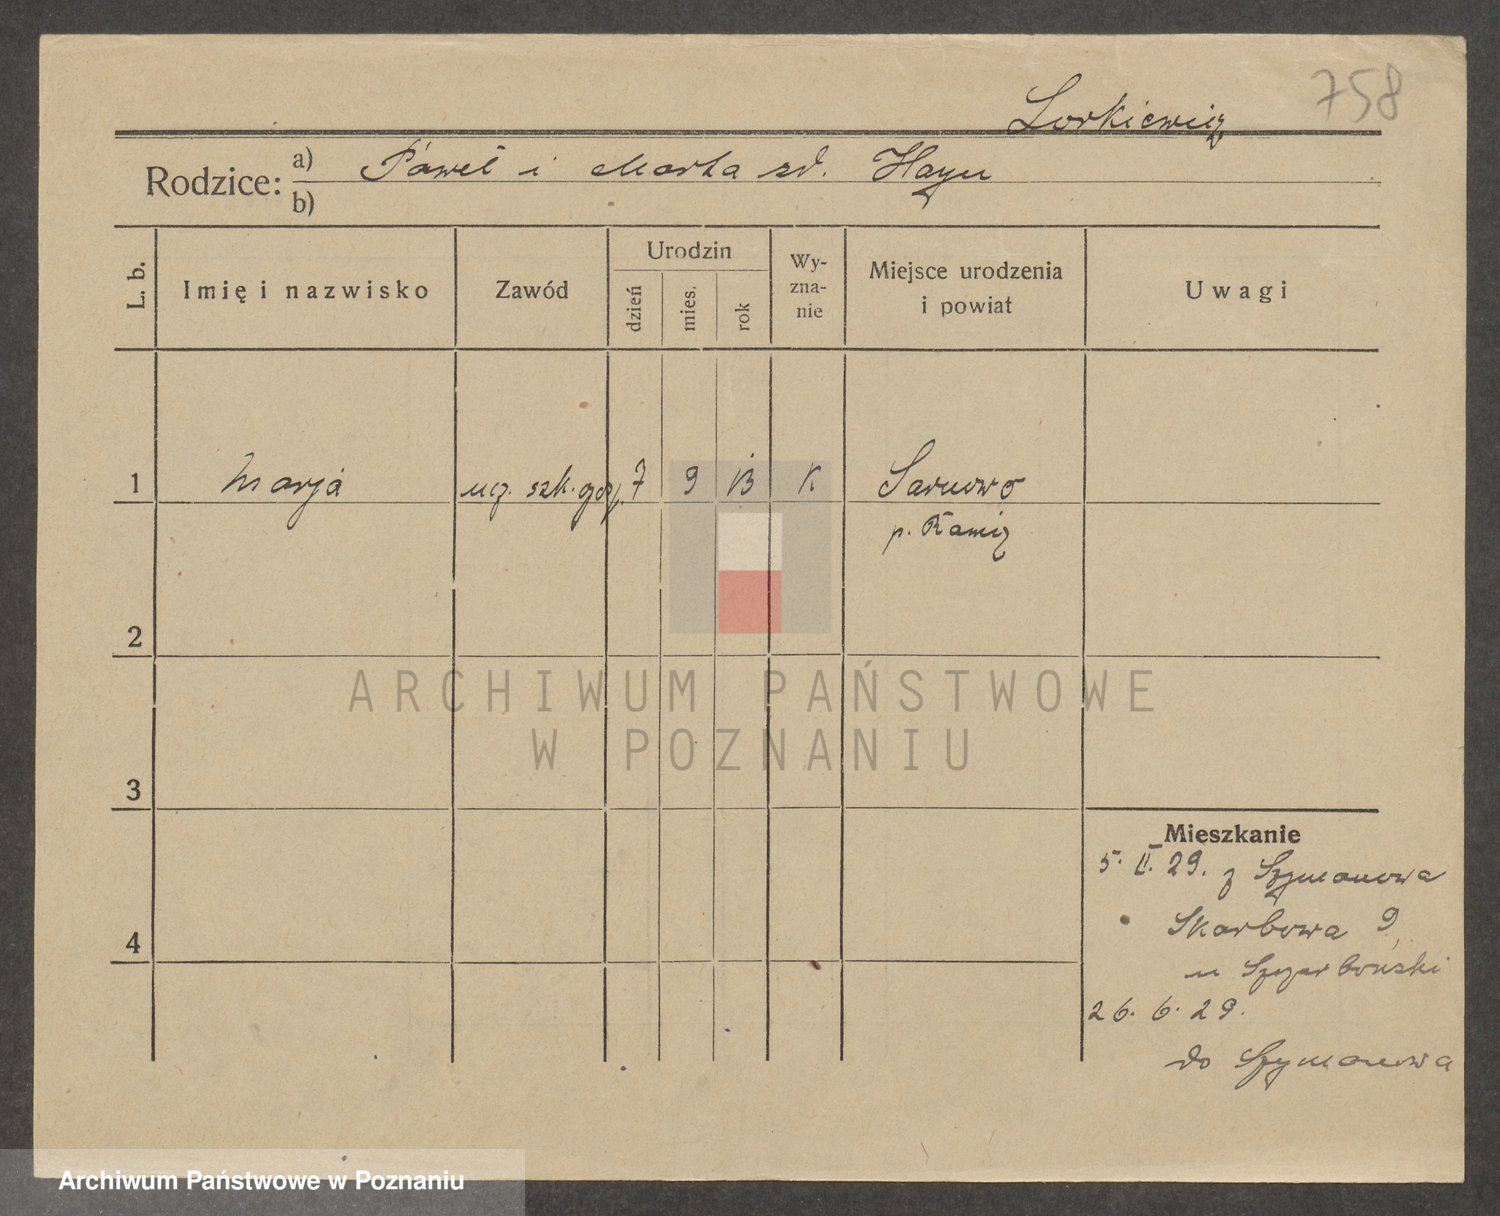 758
Lorkiewicz
Rodzice: a) Paweł i Marta zd. Hayn
b)
L. b. Imię i nazwisko Zawód Urodzin dzień mies. rok Wyznanie Miejsce urodzenia i powiat Uwagi
1 Marja ucz. szk. gosp. 7 9 13 K Sarnowo
p. Rawicz
2
3
4
Mieszkanie
5. II. 29. z Szymanowa
Skarbowa 9
u
26. 6. 29.
do Szymanowa
ARCHIWUM PAŃSTWOWE
W POZNANIU
Archiwum Państwowe w Poznaniu